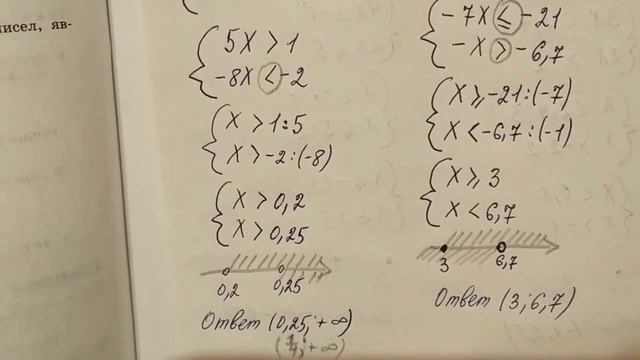 исел, яв-
5x > 1
-8x < -2
x > 1:5
x > -2:(-8)
x > 0,2
x > 0,25
0,2 0,25
Ответ (0,25; +∞)
(1/4; +∞)
-7x ≤ -21
-x > -6,7
x ≥ -21:(-7)
x < -6,7:(-1)
x ≥ 3
x < 6,7
3 6,7
Ответ (3; 6,7)